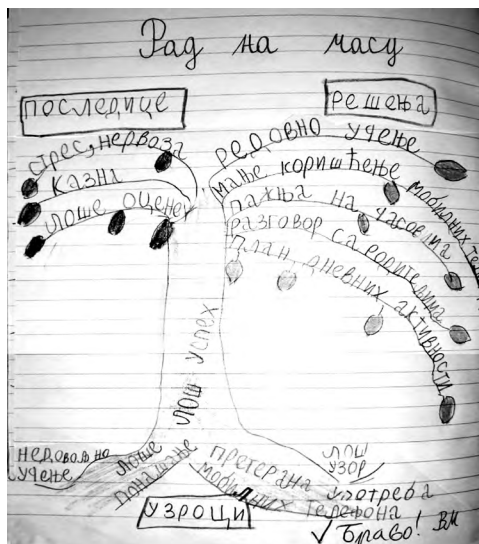 Рад на часу
ПОСЛЕДИЦЕ
стрес, нервоза
казна
лоше оцене
РЕШЕЊА
редовно учење
мање коришћење мобилних
пажња на часовима
разговор са родитељима
план дневних активности
ЛОШ УСПЕХ
недовољно
учење
лоше
понашање
претерана употреба
мобилних телефона
лош
узор
УЗРОЦИ
✓ Браво! ВМ